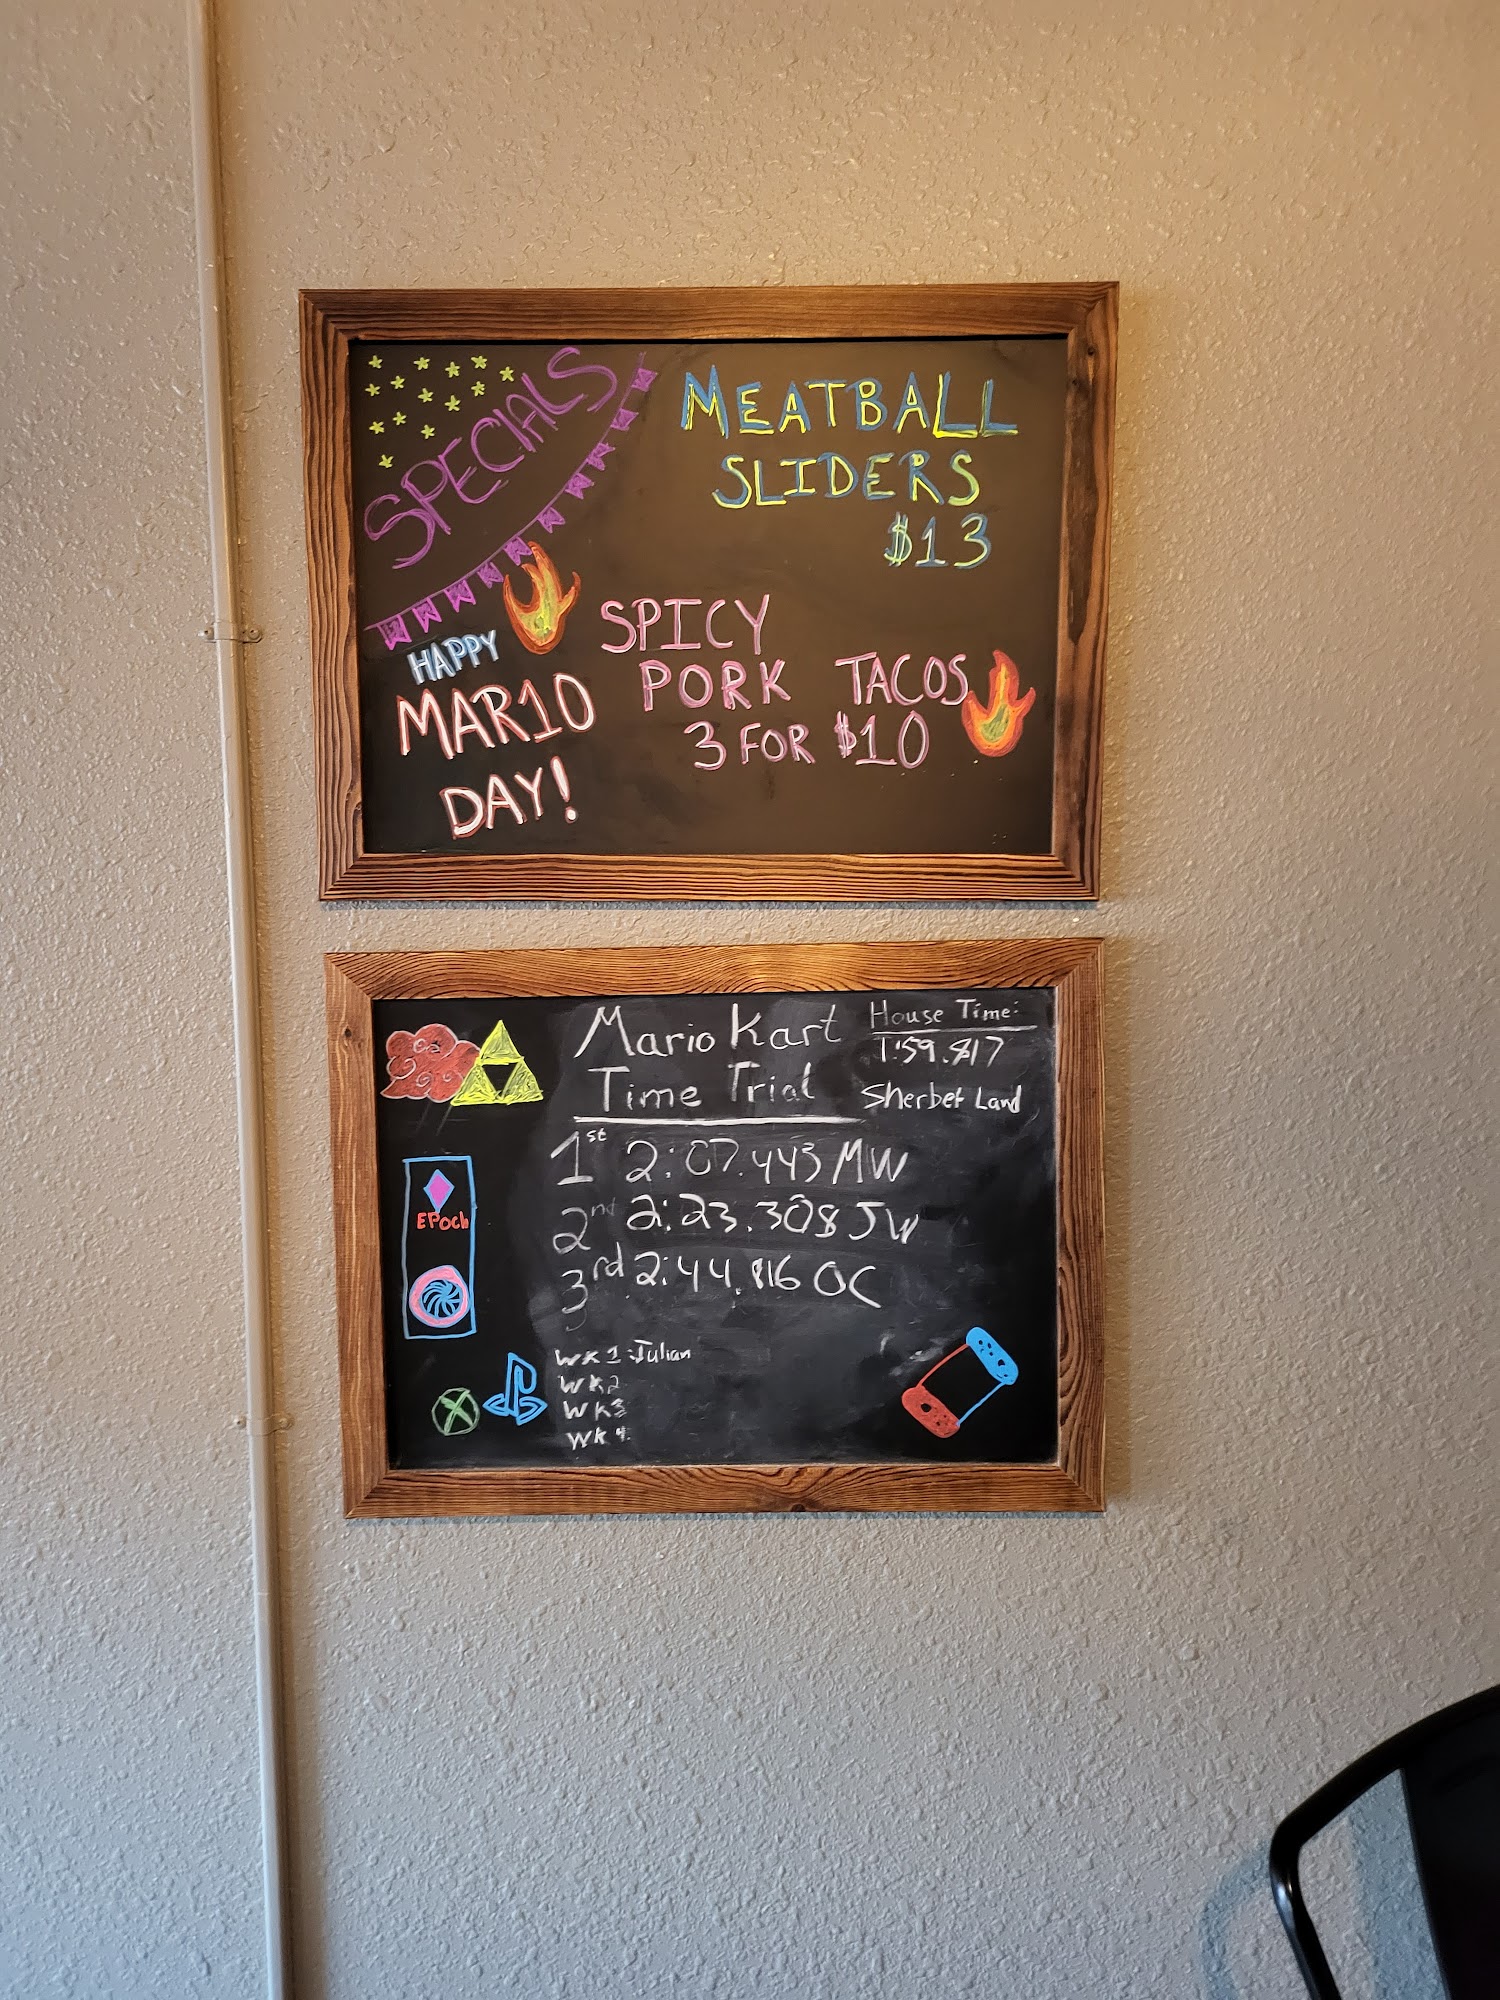 SPECIALS
MEATBALL
SLIDERS
$13
HAPPY
MAR10
DAY!
SPICY
PORK TACOS
3 FOR $10
Mario Kart
Time Trial
House Time:
1:59.817
Sherbet Land
1st 2:07.443 MW
2nd 2:23.308 JW
3rd 2:44.816 OC
EPoch
WK1:Julian
WK2
WK3
WK4